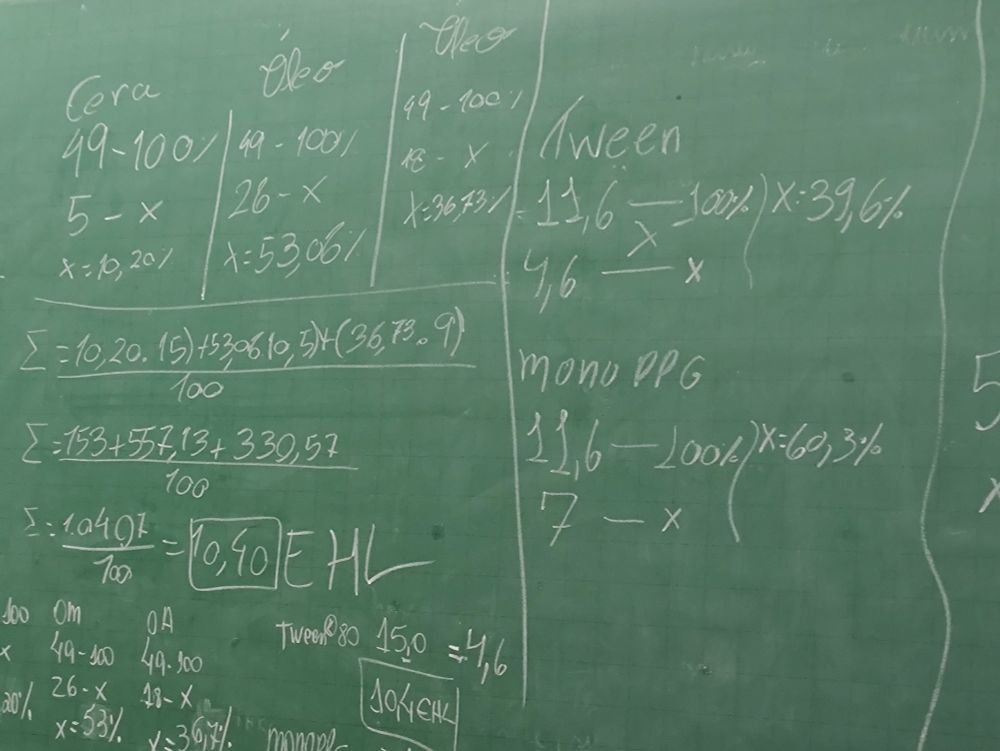 Cera
49-100%
5 - x
x=10,20%
Óleo
49 - 100%
26 - x
x=53,06%
Óleo
49 - 100%
18 - x
x=36,73%
Σ=10,20.15)+53,0610,5)+(36,73.9)
100
Σ=153+557,13+330,57
100
Σ=1.0407
100
= 10,40 EHL
100
x
20%
OM
49-100
26-x
x=53%
OA
49-100
18-x
x=36,7%
Tween®80 15,0 = 4,6
10,4EHL
Tween
11,6 — 100% ) x=39,6%
4,6 — x
mono PPG
11,6 — 100% ) x=60,3%
7 — x
5